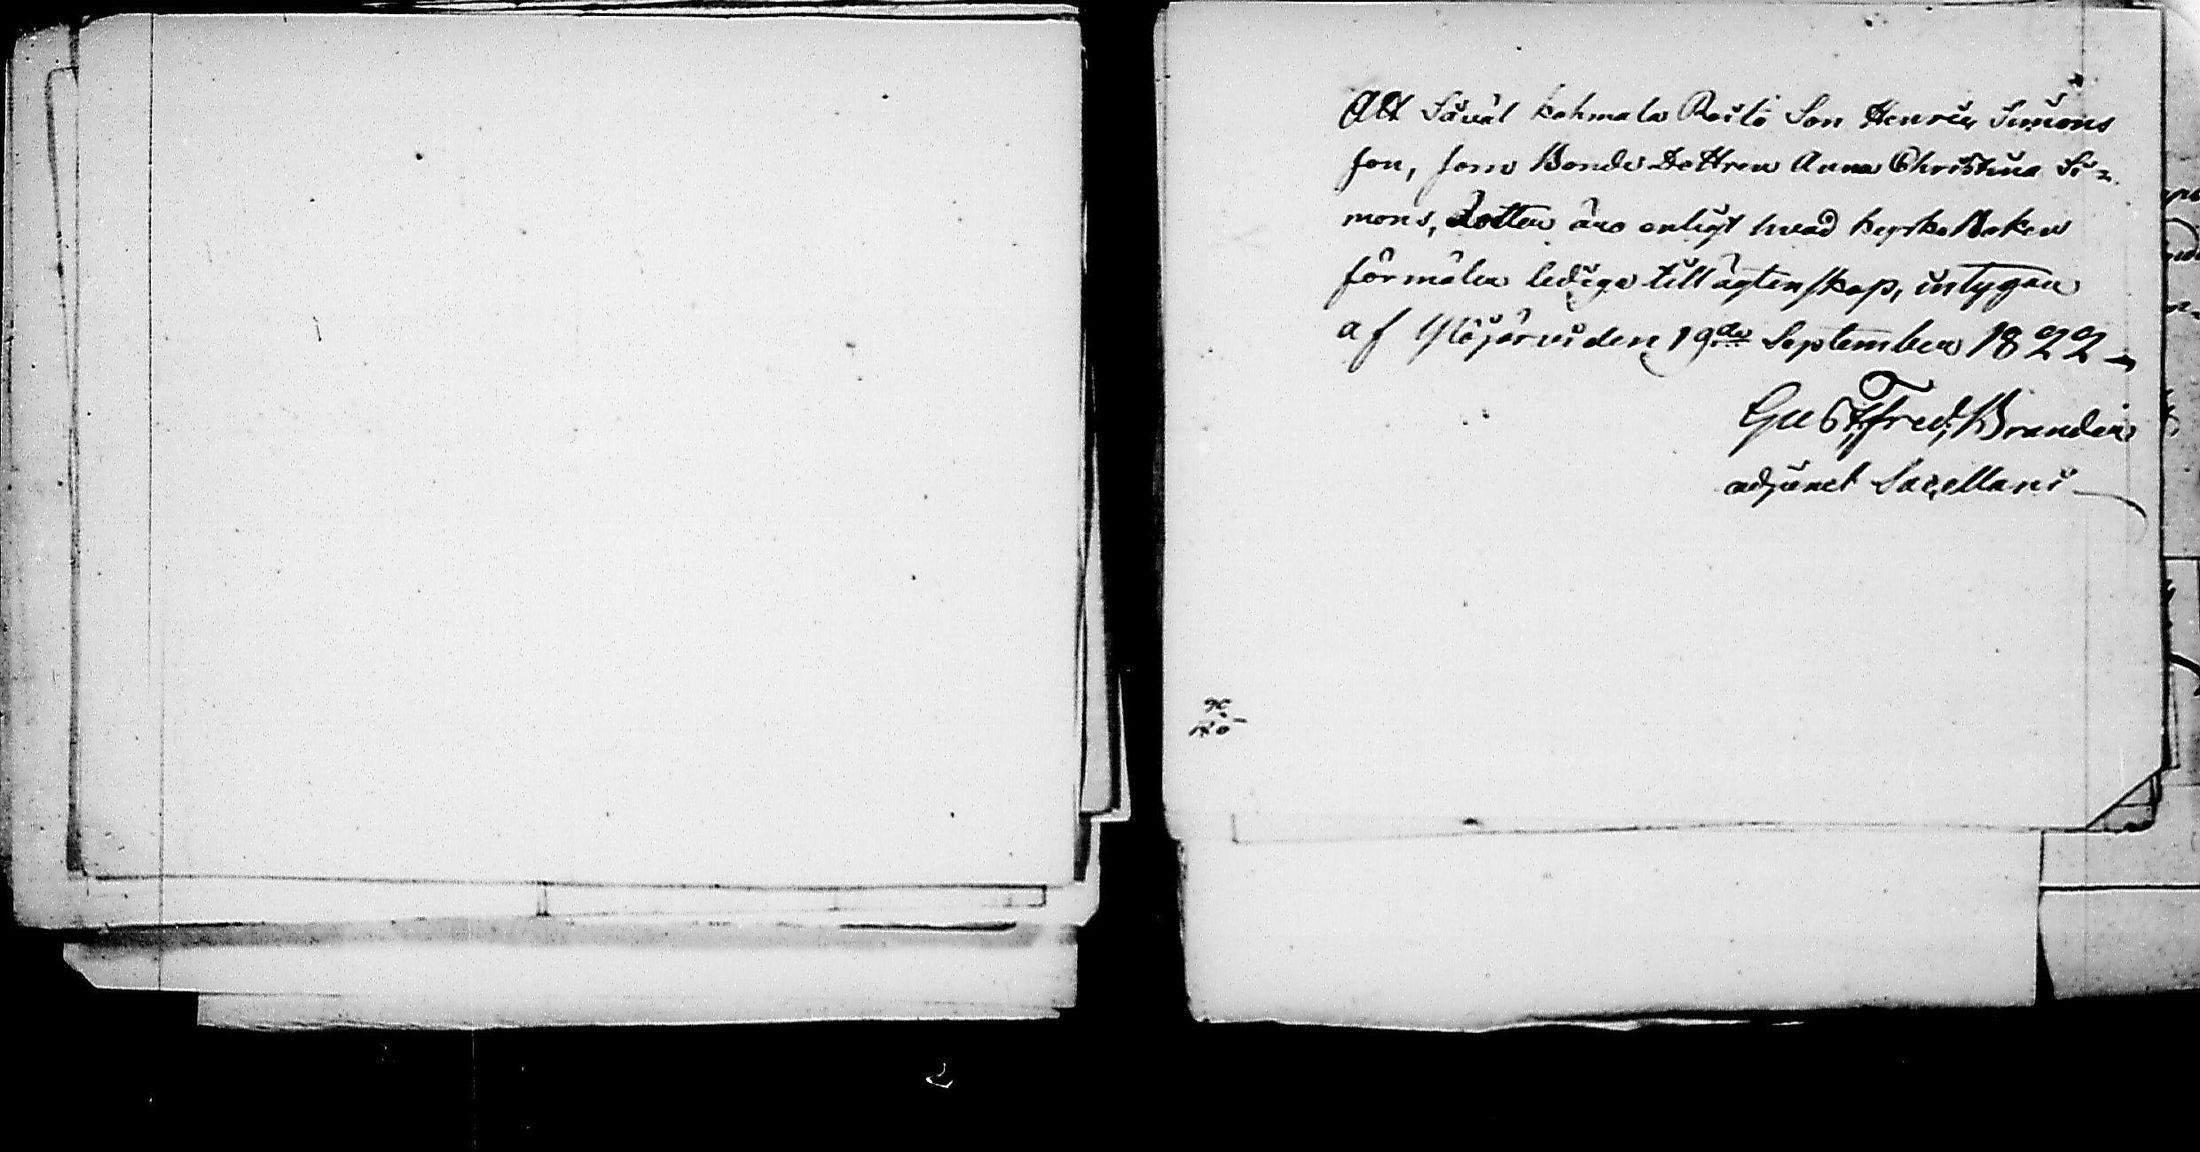 Att såväl kohmala Rosto Son Henric Simons
son, som Bonde Dottren Anna Christina Si=
mons, dotter äro enligt hvad kyrkoBoken
förmäler lediga till ägtenskap, intygar
af Ylöjärvi den 19de September 1822
Gust. Fred. Brandin
adjunct Sacellani